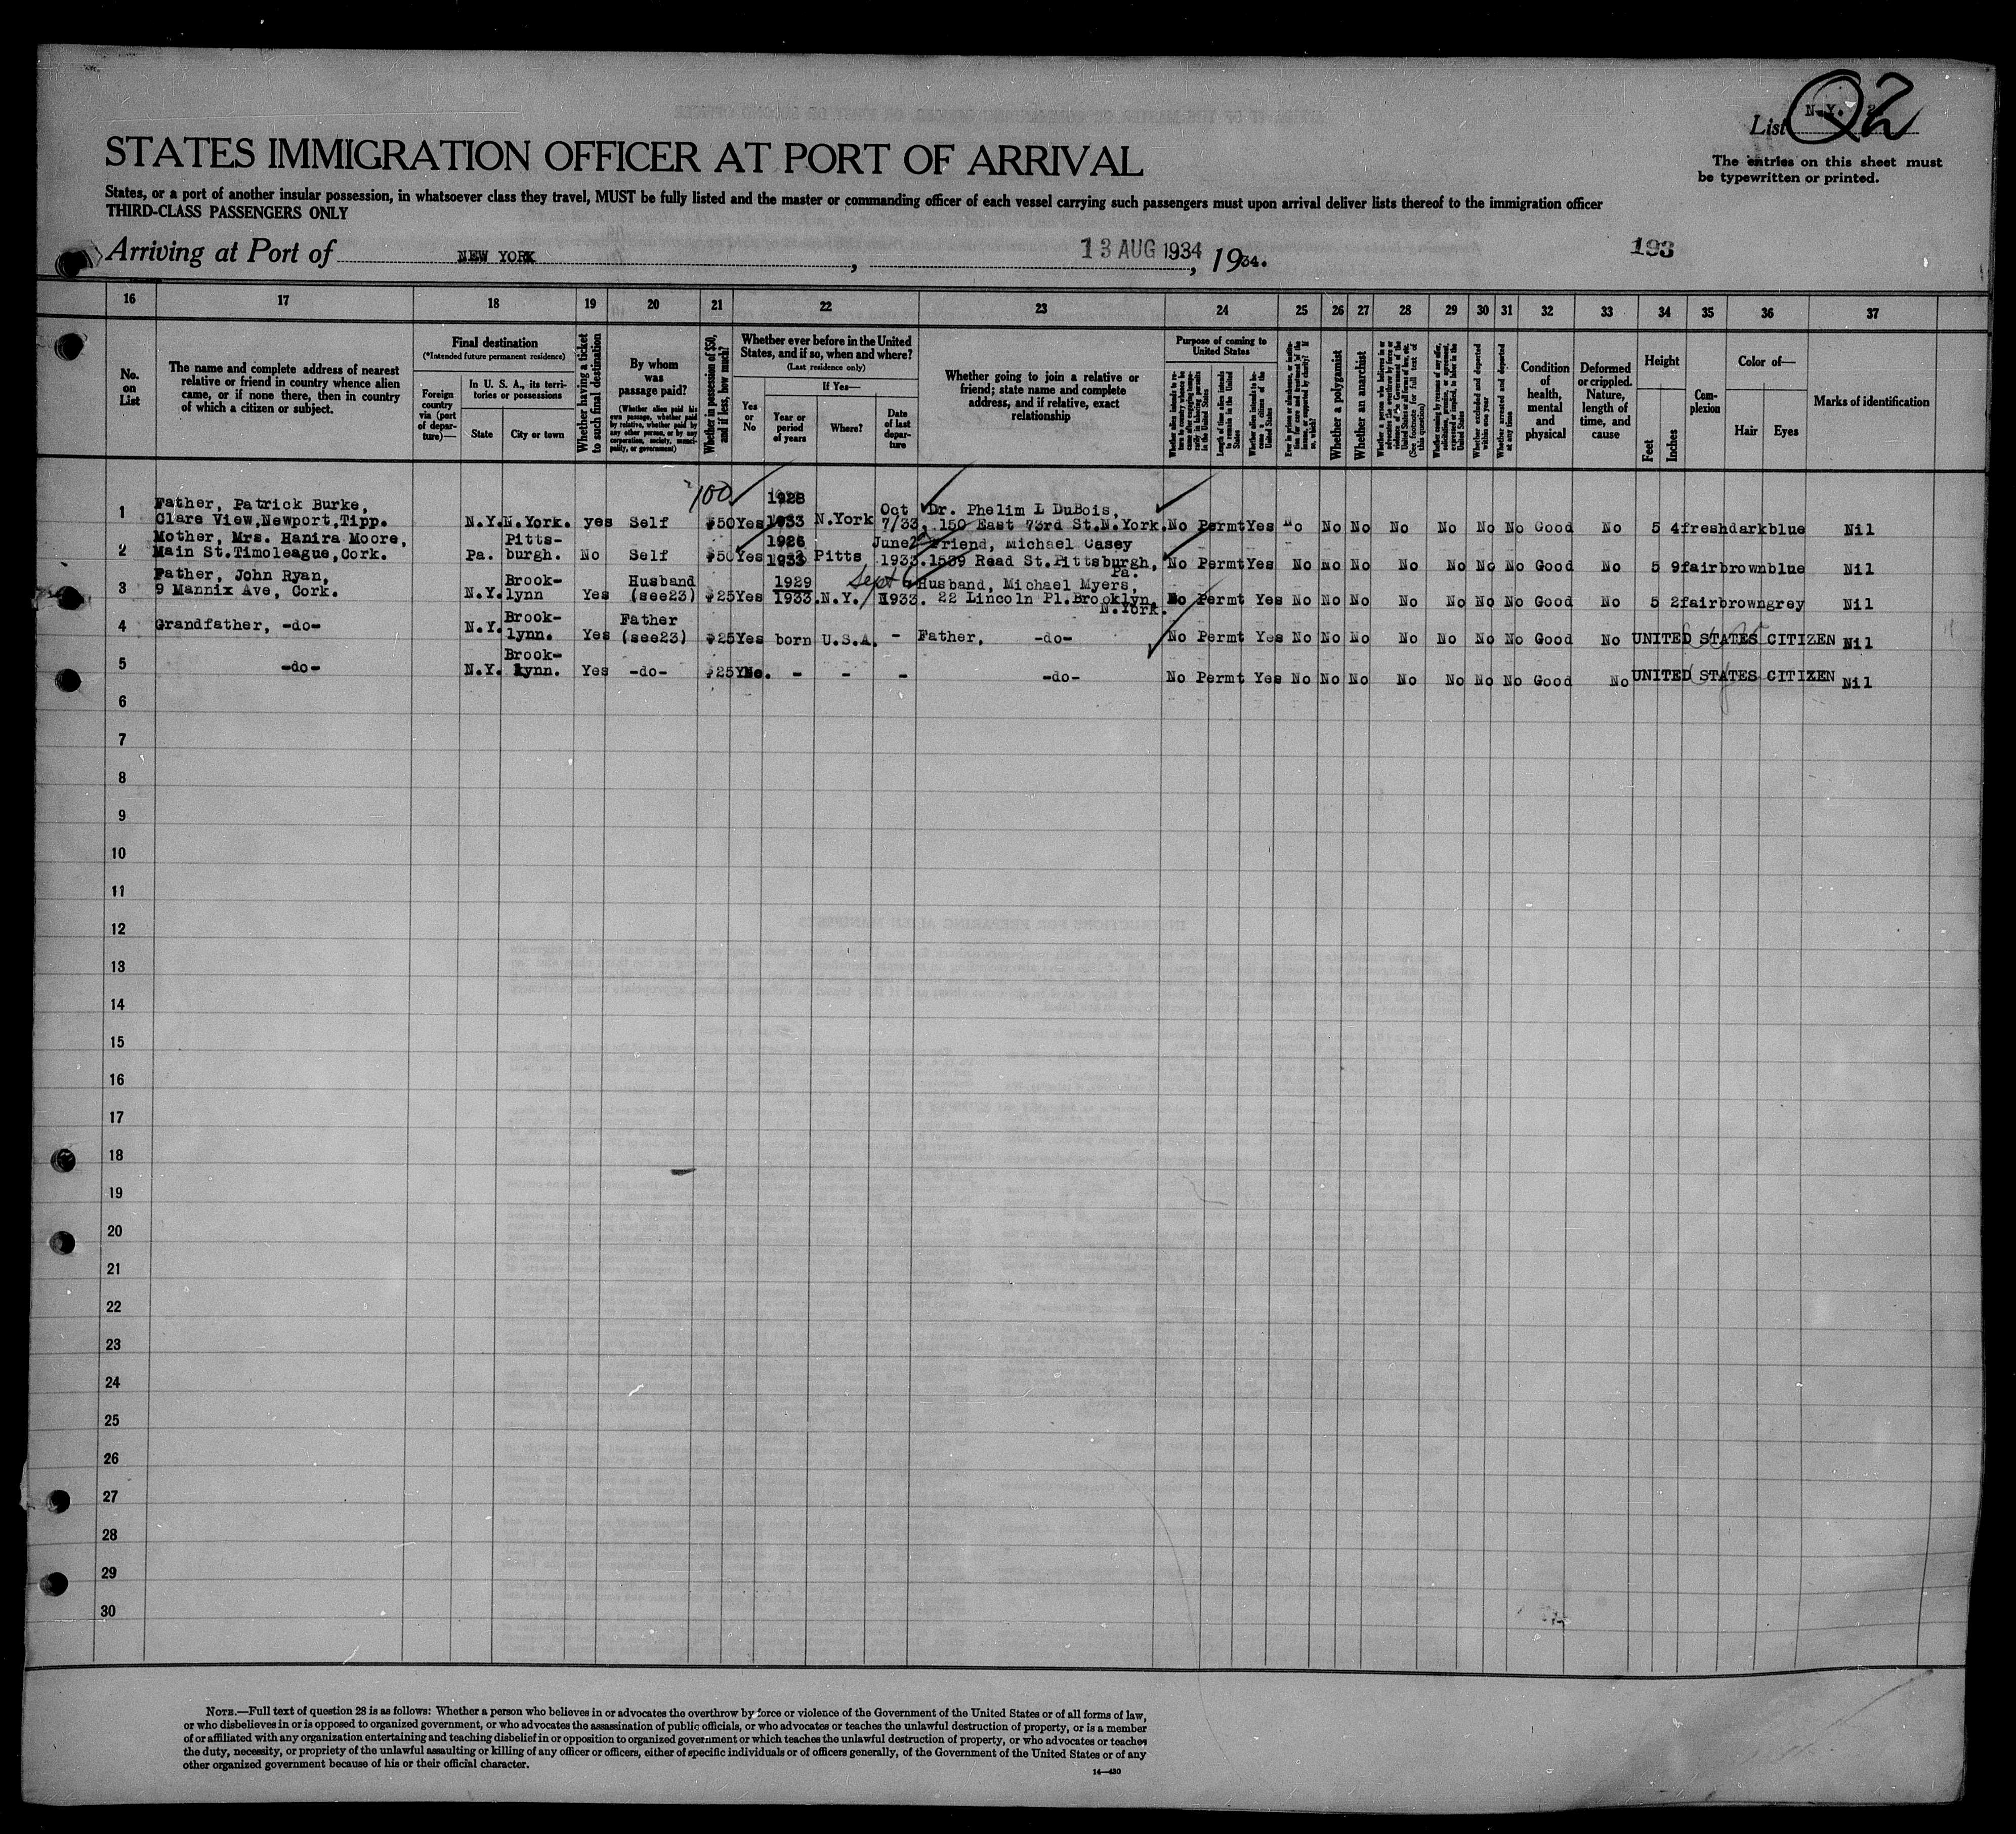 List N.Y. 2
Q2
The entries on this sheet must
be typewritten or printed.
STATES IMMIGRATION OFFICER AT PORT OF ARRIVAL
States, or a port of another insular possession, in whatsoever class they travel, MUST be fully listed and the master or commanding officer of each vessel carrying such passengers must upon arrival deliver lists thereof to the immigration officer
THIRD-CLASS PASSENGERS ONLY
Arriving at Port of NEW YORK, 13 AUG 1934, 1934. 193
16 17 18 19 20 21 22 23 24 25 26 27 28 29 30 31 32 33 34 35 36 37
No. on List
The name and complete address of nearest
relative or friend in country whence alien
came, or if none there, then in country
of which a citizen or subject.
Final destination
(*Intended future permanent residence)
Foreign country via (port of departure)—
In U. S. A., its territories or possessions
State
City or town
Whether having a ticket to such final destination
By whom was passage paid?
(Whether alien paid his own passage, whether paid by relative, whether paid by any other person, or by any corporation, society, municipality, or government)
Whether in possession of $50, and if less, how much?
Whether ever before in the United
States, and if so, when and where?
(Last residence only)
Yes or No
If Yes—
Year or period of years
Where?
Date of last departure
Whether going to join a relative or
friend; state name and complete
address, and if relative, exact
relationship
Purpose of coming to United States
Length of time alien intends to remain in the United States
Whether alien intends to become a citizen of the United States
Whether a polygamist
Whether an anarchist
Whether excluded and deported within one year
Whether arrested and deported at any time
Condition of health, mental and physical
Deformed or crippled. Nature, length of time, and cause
Height
Feet
Inches
Complexion
Color of—
Hair
Eyes
Marks of identification
100
1 Father, Patrick Burke,
Clare View,Newport,Tipp. N.Y. N.York. yes Self $50 Yes 1928 1933 N.York Oct 7/33, Dr. Phelim L DuBois,
150 East 73rd St.N.York. No Permt Yes No No No No No No No Good No 5 4 fresh dark blue Nil
2 Mother, Mrs. Hanira Moore,
Main St.Timoleague,Cork. Pa. Pitts-
burgh. No Self $50 Yes 1926 1933 Pitts June 1933. Friend, Michael Casey
1539 Read St.Pittsburgh,
Pa. No Permt Yes No No No No No No No Good No 5 9 fair brown blue Nil
3 Father, John Ryan,
9 Mannix Ave, Cork. N.Y. Brook-
lynn Yes Husband
(see23) $25 Yes 1929 1933 N.Y. Sept 6 1933. Husband, Michael Myers,
22 Lincoln Pl.Brooklyn,
N.York. No Permt Yes No No No No No No No Good No 5 2 fair brown grey Nil
4 Grandfather, -do- N.Y. Brook-
lynn. Yes Father
(see23) $25 Yes born U.S.A. - Father, -do- No Permt Yes No No No No No No No Good No UNITED STATES CITIZEN Nil
5 -do- N.Y. Brook-
lynn. Yes -do- $25 No. - - - -do- No Permt Yes No No No No No No No Good No UNITED STATES CITIZEN Nil
6
7
8
9
10
11
12
13
14
15
16
17
18
19
20
21
22
23
24
25
26
27
28
29
30
NOTE.—Full text of question 28 is as follows: Whether a person who believes in or advocates the overthrow by force or violence of the Government of the United States or of all forms of law,
or who disbelieves in or is opposed to organized government, or who advocates the assassination of public officials, or who advocates or teaches the unlawful destruction of property, or is a member
of or affiliated with any organization entertaining and teaching disbelief in or opposition to organized government or which teaches the unlawful destruction of property, or who advocates or teaches
the duty, necessity, or propriety of the unlawful assaulting or killing of any officer or officers, either of specific individuals or of officers generally, of the Government of the United States or of any
other organized government because of his or their official character.
14—430